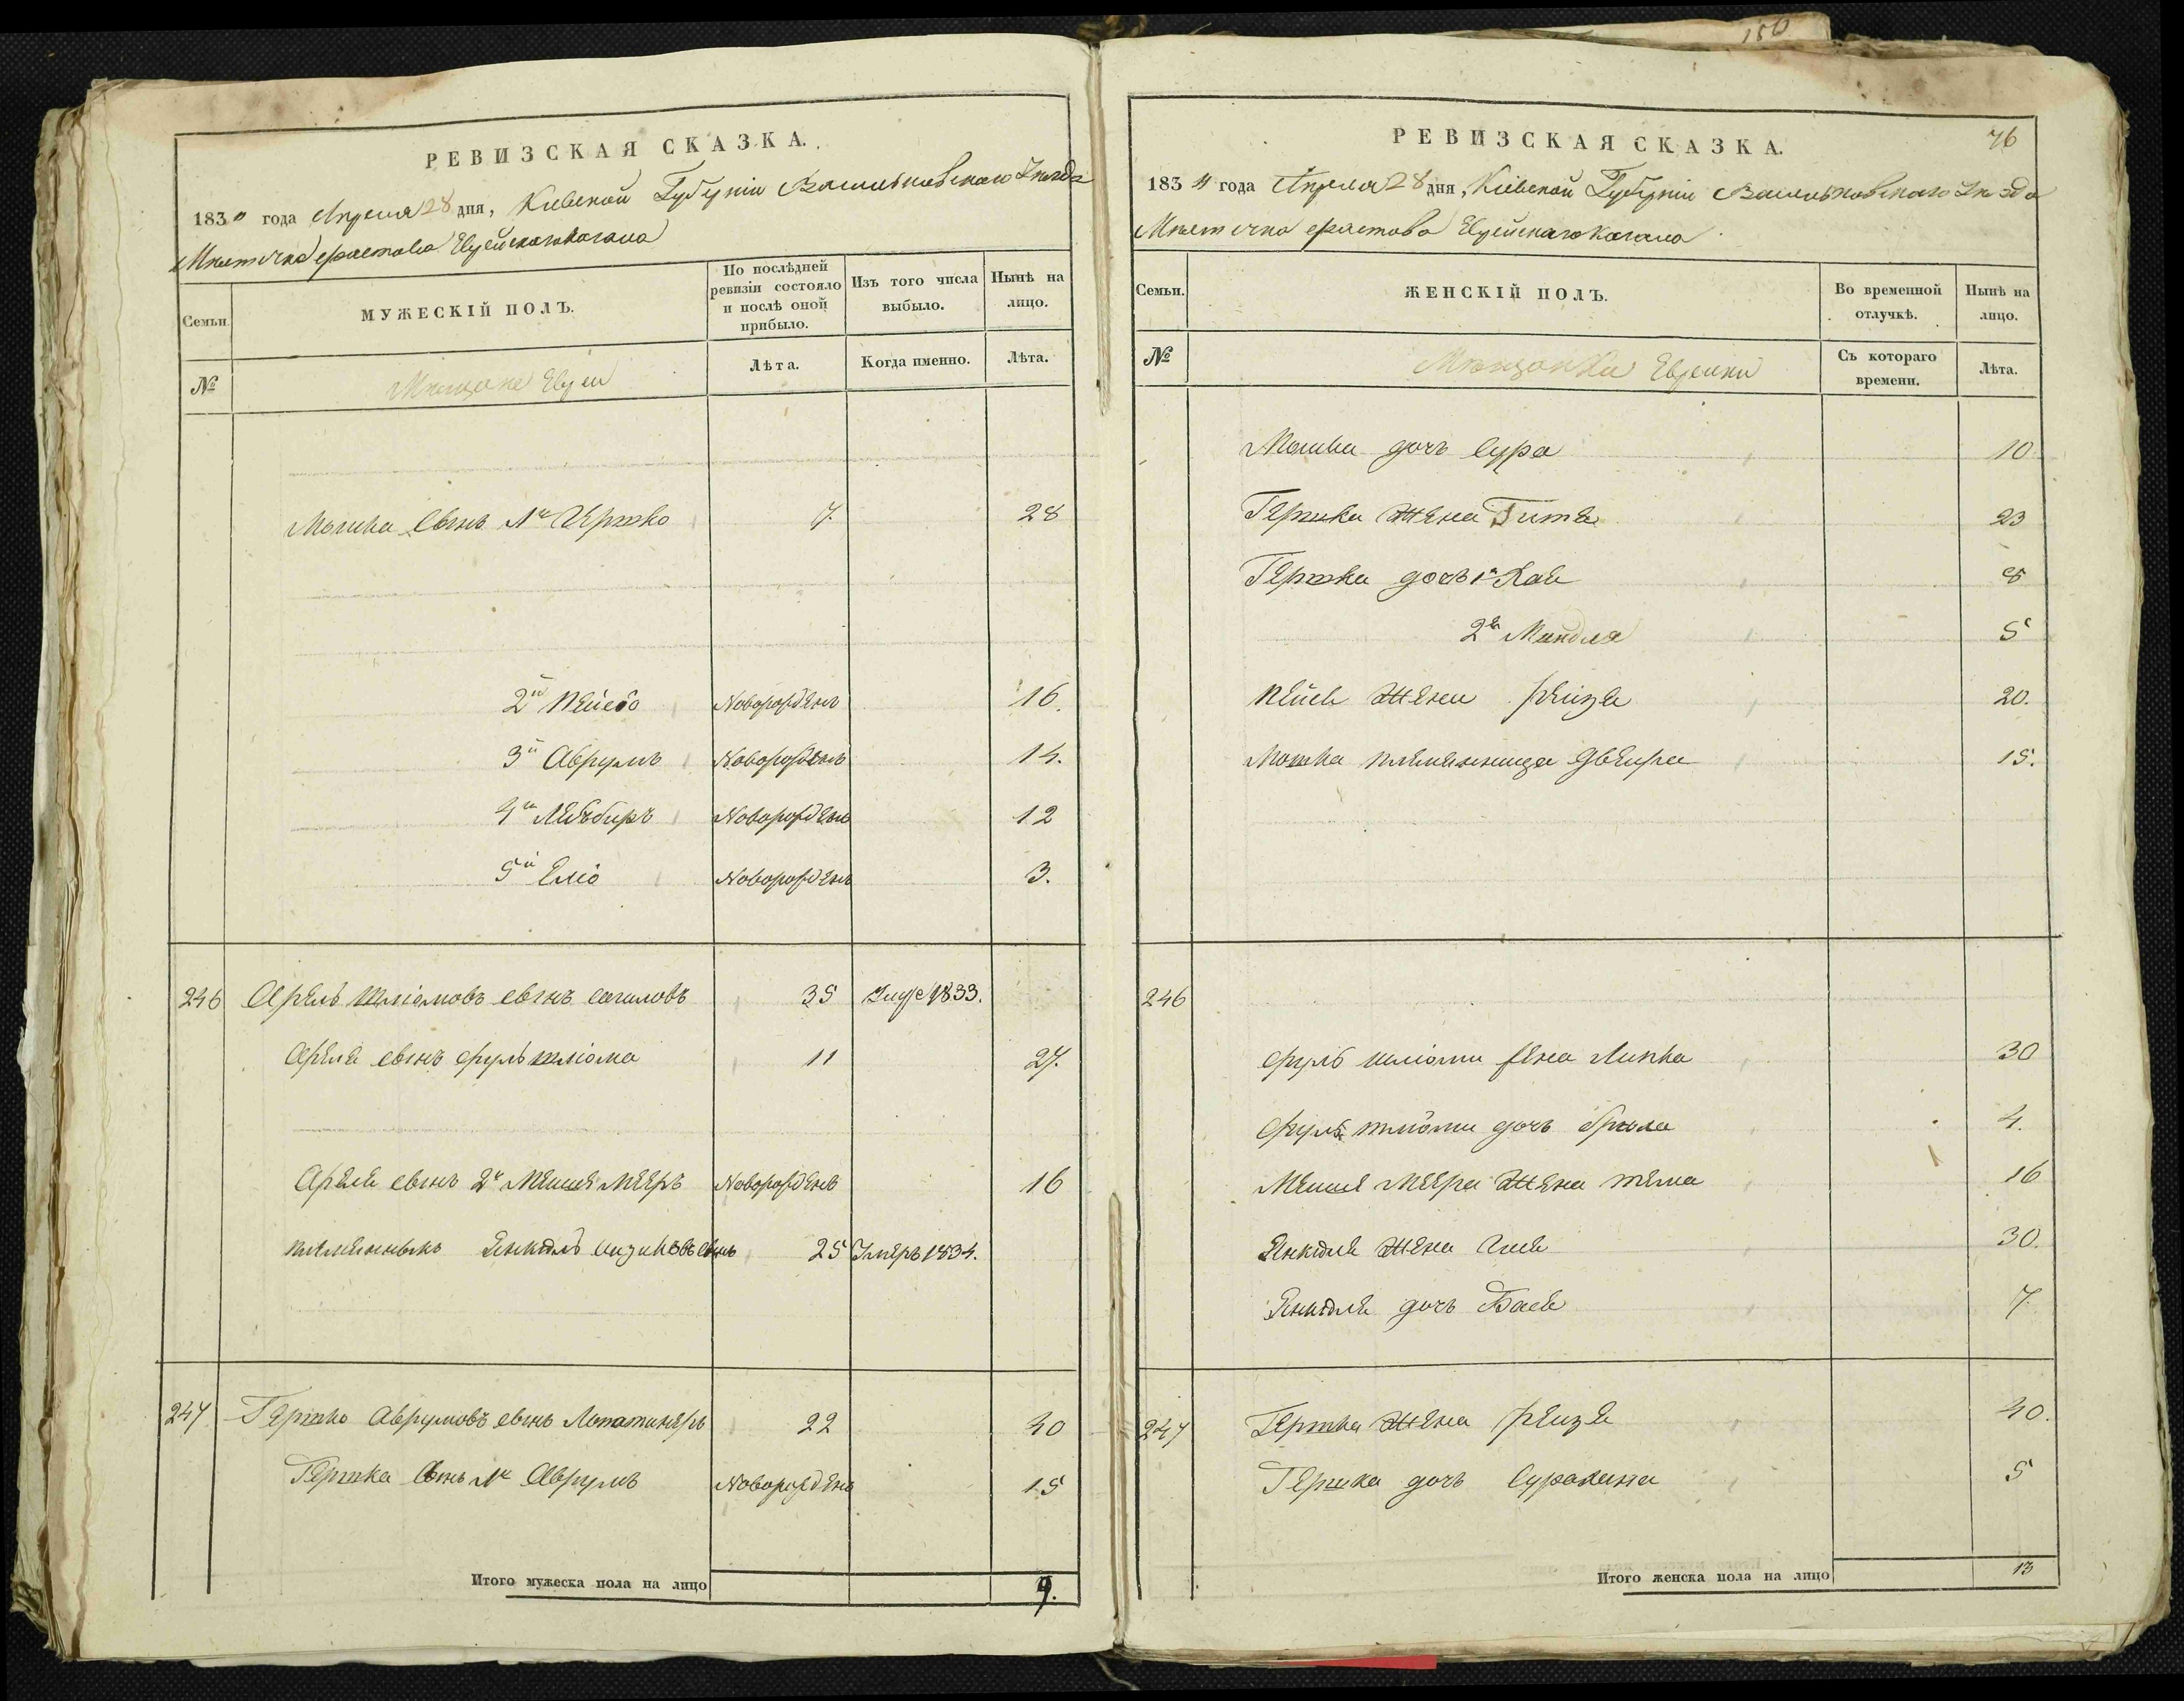 150
РЕВИЗСКАЯ СКАЗКА.
1834 года Апреля 28 дня, Кіевской Губерніи Васильковскаго Уезда
Местечка Фастова Еврейскаго Кагала
Семьи.
МУЖЕСКІЙ ПОЛЪ.
По послѣдней ревизіи состояло и послѣ оной прибыло.
Изъ того числа выбыло.
Нынѣ на лицо.
№
Мещане Евреи
Лѣта.
Когда именно.
Лѣта.
Мошка сынъ 1й Гершко 7. 28
2й Пейсо Новорожденъ 16.
3й Аврумъ Новорожденъ 14.
4й Новорожденъ 12
5й Еліо Новорожденъ 3.
246 Арель Шліомовъ сынъ 35 1833.
Ареля сынъ Фулъ Шліома 11 27.
Ареля сынъ 2й Мошей Мееръ Новорожденъ 16
племянникъ Янкель сынъ 25 Умеръ 1834.
247 Гершко Аврумовъ сынъ Лопатинеръ 22 40
Гершка сынъ 1й Аврумъ Новорожденъ 15
Итого мужеска пола на лицо 9.
РЕВИЗСКАЯ СКАЗКА. 76
1834 года Апреля 28 дня, Кіевской Губерніи Васильковскаго Уезда
Местечка Фастова Еврейскаго Кагала
Семьи.
ЖЕНСКІЙ ПОЛЪ.
Во временной отлучкѣ.
Нынѣ на лицо.
№
Мещанки Еврейки
Съ котораго времени.
Лѣта.
Мошки дочь Сура 10
Гершки жена Гитя 23
Гершки дочь 1я Хая 8
2я Миндля 5
Пейси жена Рейзя 20.
Мошка племянница Двейра 15.
246
Фулъ Шліоми жена Липка 30
Фулъ Шліоми дочь 4.
Мошей Меера жена Тема 16
Янкеля жена 30.
Янкеля дочь Бася 7
247 Гершка жена Рейзя 40.
Гершка дочь Сурахана 5
Итого женска пола на лицо 13